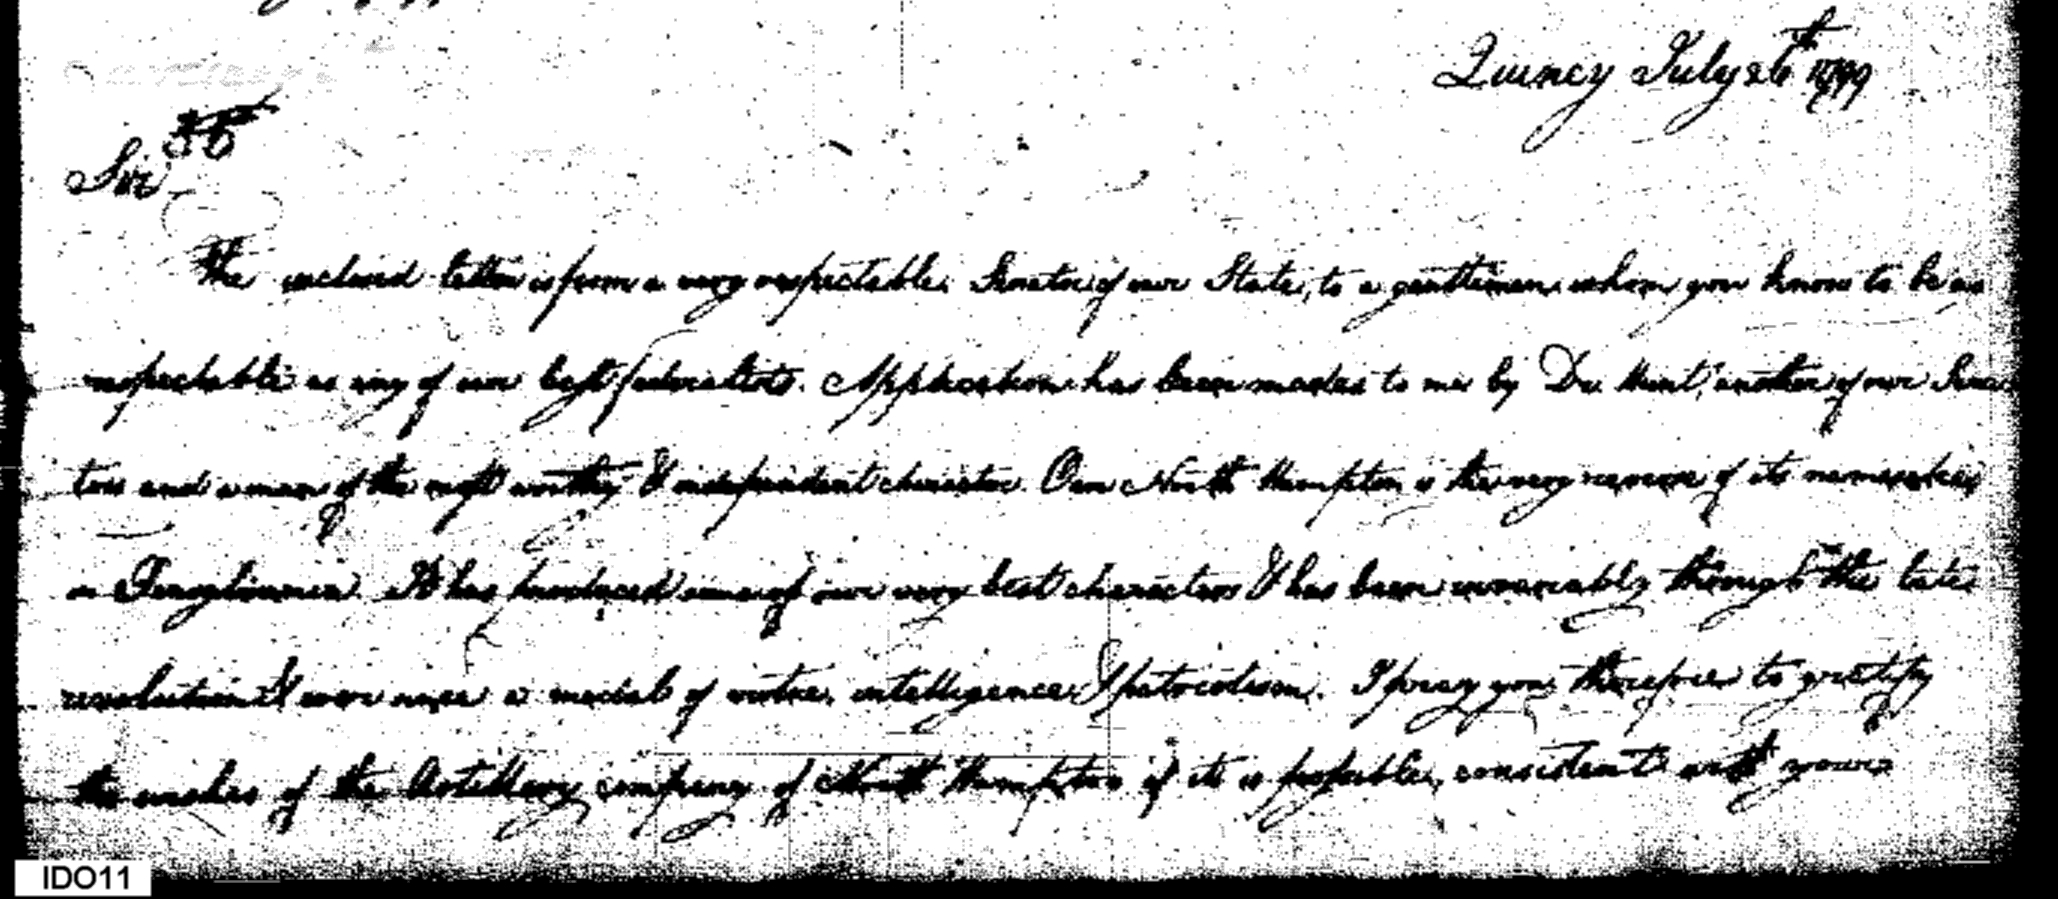 Quincy July 26th 1799
Sir
The inclosed letter is from a very respectable Senator of our State, to a gentleman whom you know to be as
respectable as any of our best federalists. Application has been made to me by Dr. Hunt, another of our Sena
tors and a man of the most worthy & independent character. Our North Hampton is the very reverse of its namesake
in Pensylvania. It has produced some of our very best characters & has been invariably through the late
revolution & ever since a model of virtue, intelligence & patriotism. I pray you therefore to gratify
the wishes of the Artillery company of North Hampton if it is possible, consistent with your
IDO11